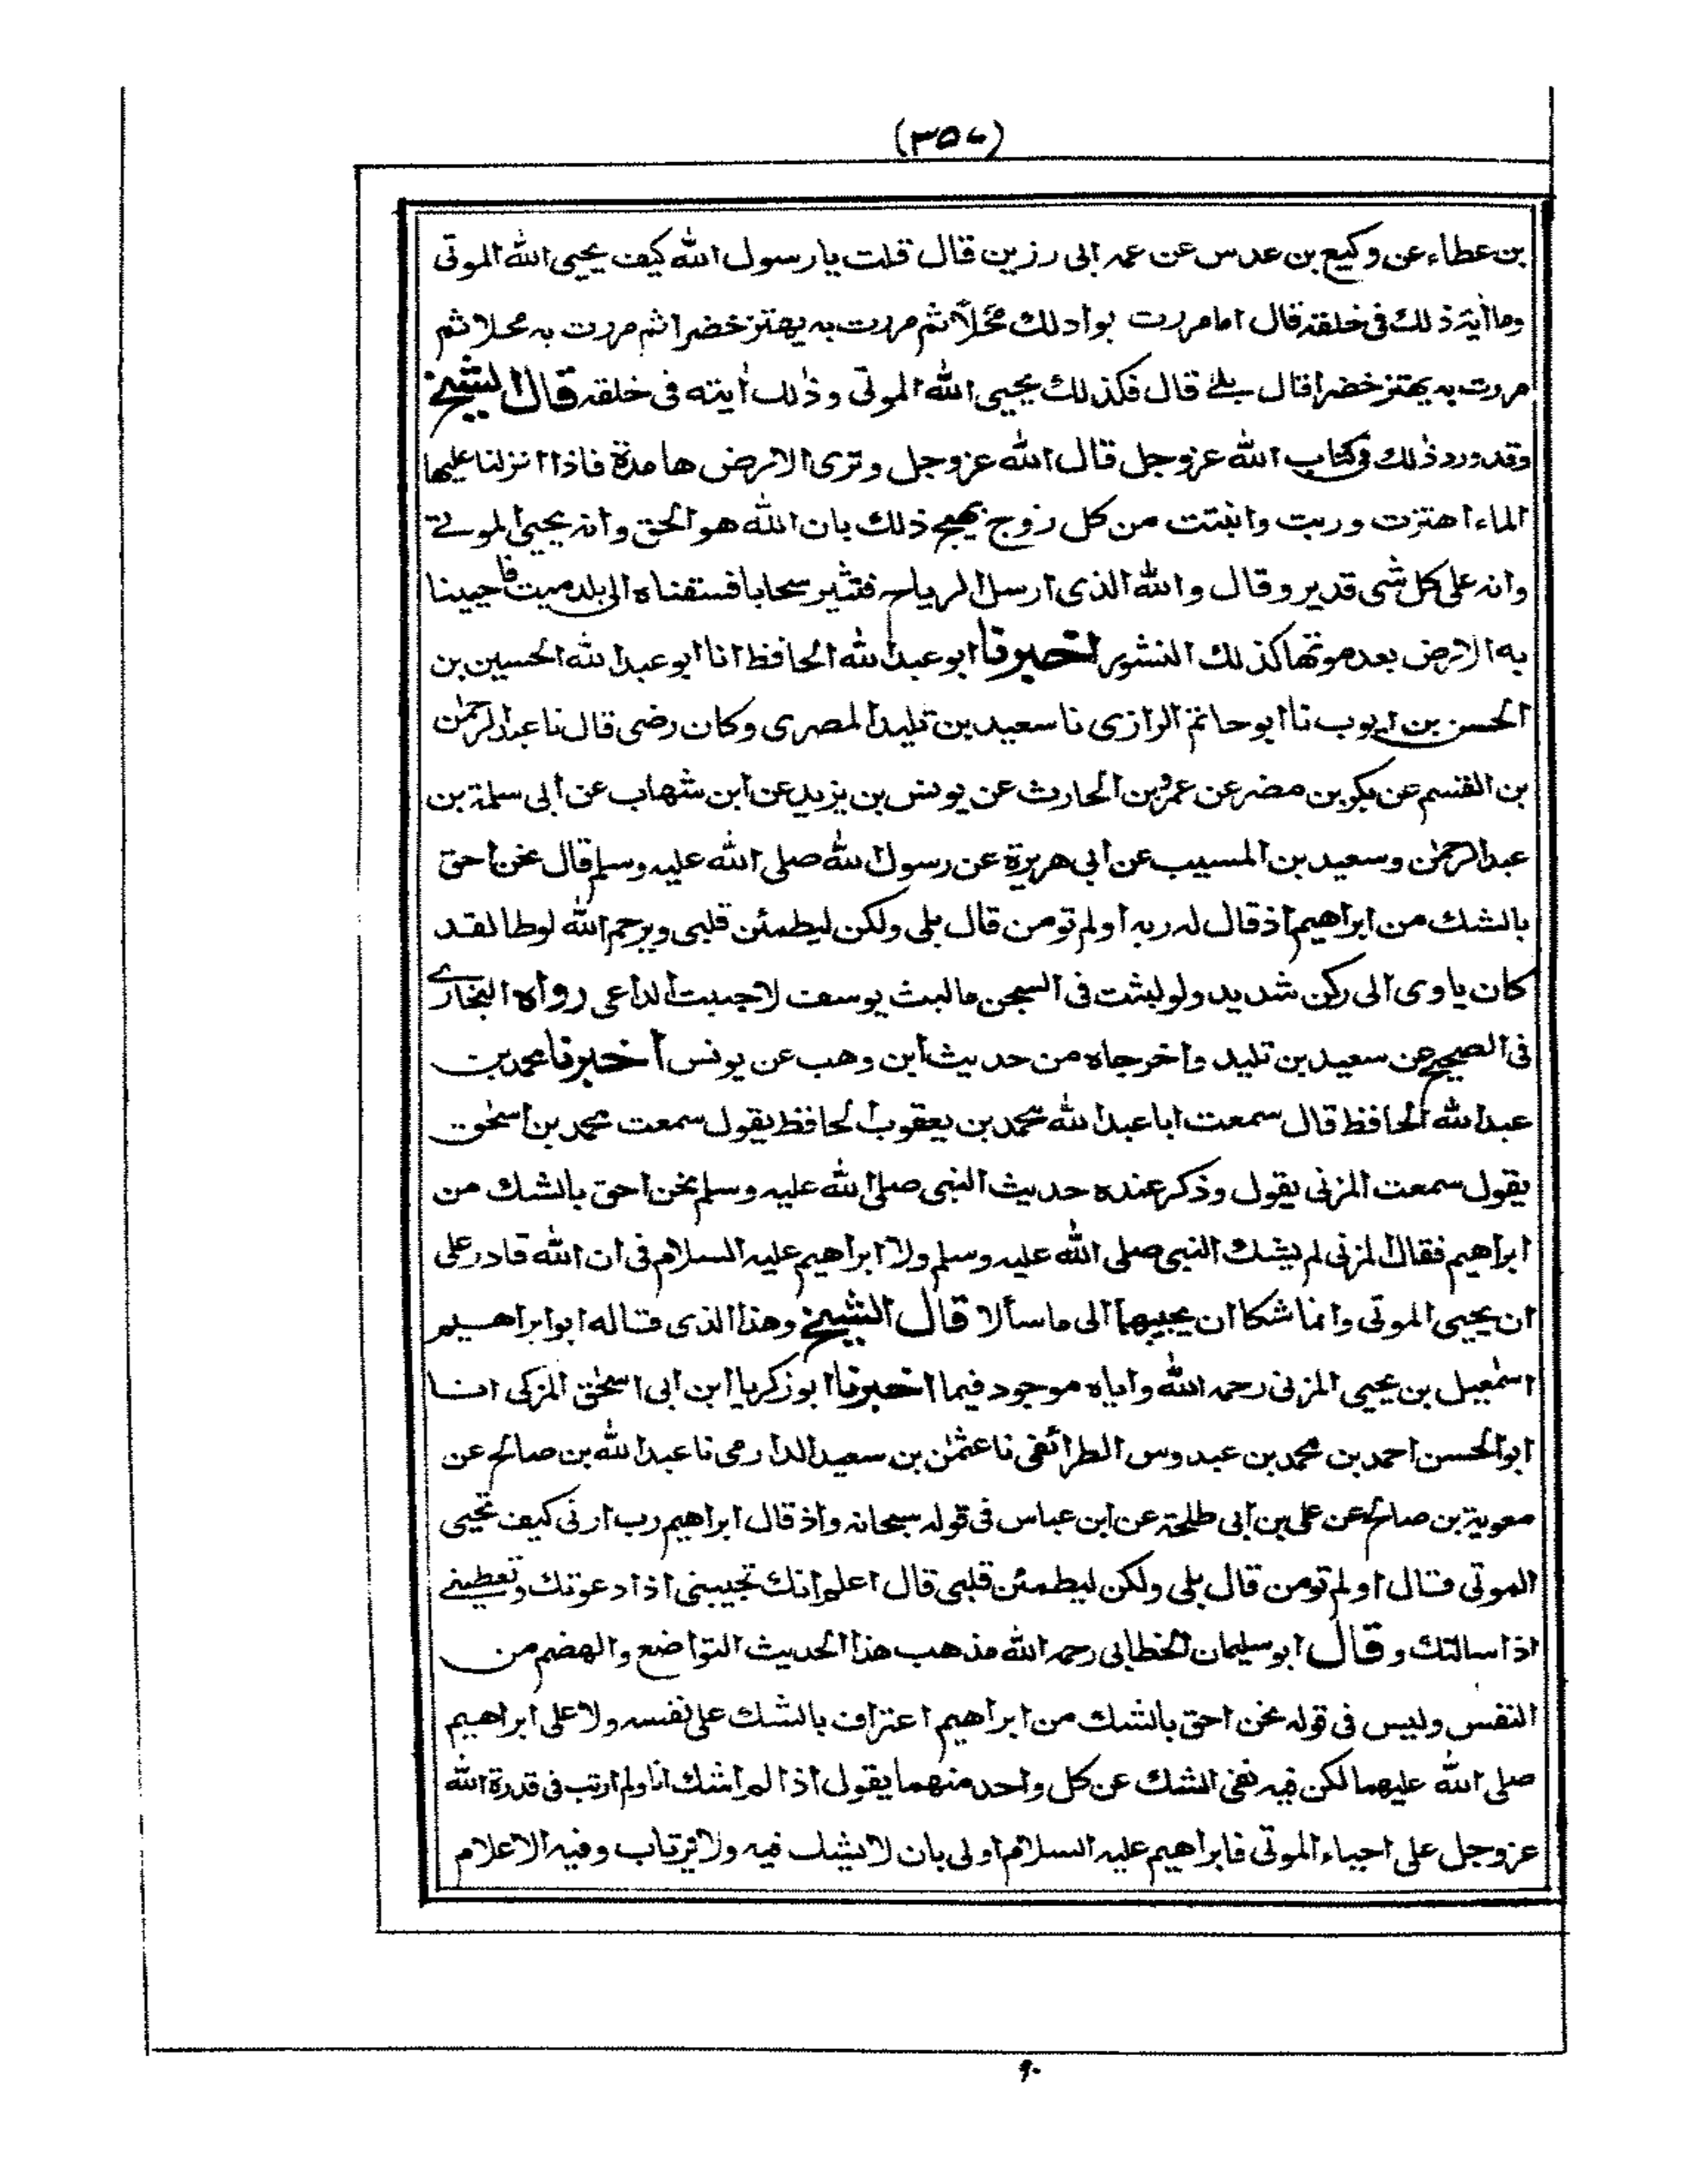 (٣٥٧)
بن عطاء عن وكيع بن عدس عن عمه ابى رزين قال قلت يا رسول الله كيف يحيى الله الموتى
وما أية ذلك فى خلقه قال اما مررت بوادلك محلا ثم مررت به يهتز خضرا ثم مررت به محلا ثم
مررت به يهتز خضرا قال بلے قال فكذلك يحيى الله الموتى وذلك أيته فى خلقه قال الشيخ
وقد ورد ذلك فى كتاب الله عزوجل قال الله عزوجل وترى الارض هامدة فاذا انزلنا عليها
الماء اهتزت وربت وانبتت من كل زوج بهيج ذلك بان الله هو الحق وانه يحيى الموتے
وانه على كل شى قدير وقال والله الذى ارسل الرياح فتثير سحابا فسقناه الى بلد ميت فاحيينا
به الارض بعد موتها كذلك النشور اخبرنا ابو عبد الله الحافظ انا ابو عبد الله الحسين بن
الحسن بن ايوب نا ابو حاتم الرازى نا سعيد بن تليد المصرى وكان رضى قال نا عبد الرحمٰن
بن القسم عن بكر بن مضر عن عمرو بن الحارث عن يونس بن يزيد عن ابن شهاب عن ابى سلمة بن
عبد الرحمٰن وسعيد بن المسيب عن ابى هريرة عن رسول الله صلى الله عليه وسلم قال نحن احق
بالشك من ابراهيم اذ قال له ربه اولم تومن قال بلى ولكن ليطمئن قلبى ويرحم الله لوطا لقد
كان ياوى الى ركن شديد ولو لبثت فى السجن ما لبث يوسف لاجببت الداعى رواه البخارے
فى الصحيح عن سعيد بن تليد واخرجاه من حديث ابن وهب عن يونس اخبرنا محمد بن
عبد الله الحافظ قال سمعت ابا عبد الله محمد بن يعقوب الحافظ يقول سمعت محمد بن اسحٰق
يقول سمعت المزنى يقول وذكر عنده حديث النبى صلى الله عليه وسلم نحن احق بالشك من
ابراهيم فقال المزنى لم يشك النبى صلى الله عليه وسلم ولا ابراهيم عليه السلام فى ان الله قادر على
ان يحيى الموتى وانما شكا ان يجيبهما الى ما سألا قال الشيخ وهذا الذى قاله ابو ابراهيم
اسمٰعيل بن يحيى المزنى رحمه الله واياه موجود فيما اخبرنا ابو زكريا ابن ابى اسحٰق المزكى انا
ابو الحسن احمد بن محمد بن عبدوس الطرائفى نا عثمٰن بن سعيد الدارمى نا عبد الله بن صالح عن
معوية بن صالح عن على بن ابى طلحة عن ابن عباس فى قوله سبحانه واذ قال ابراهيم رب ارنى كيف تحيى
الموتى قال اولم تومن قال بلى ولكن ليطمئن قلبى قال اعلم انك تجيبنى اذا دعوتك وتعطينے
اذا سالتك وقال ابو سليمان الخطابى رحمه الله مذهب هذا الحديث التواضع والهضم من
النفس وليس فى قوله نحن احق بالشك من ابراهيم اعتراف بالشك على نفسه ولا على ابراهيم
صلى الله عليهما لكن فيه نفى الشك عن كل واحد منهما يقول اذا لم اشك انا ولم ارتب فى قدرة الله
عزوجل على احياء الموتى فابراهيم عليه السلام اولى بان لا يشك فيه ولا يرتاب وفيه الاعلام